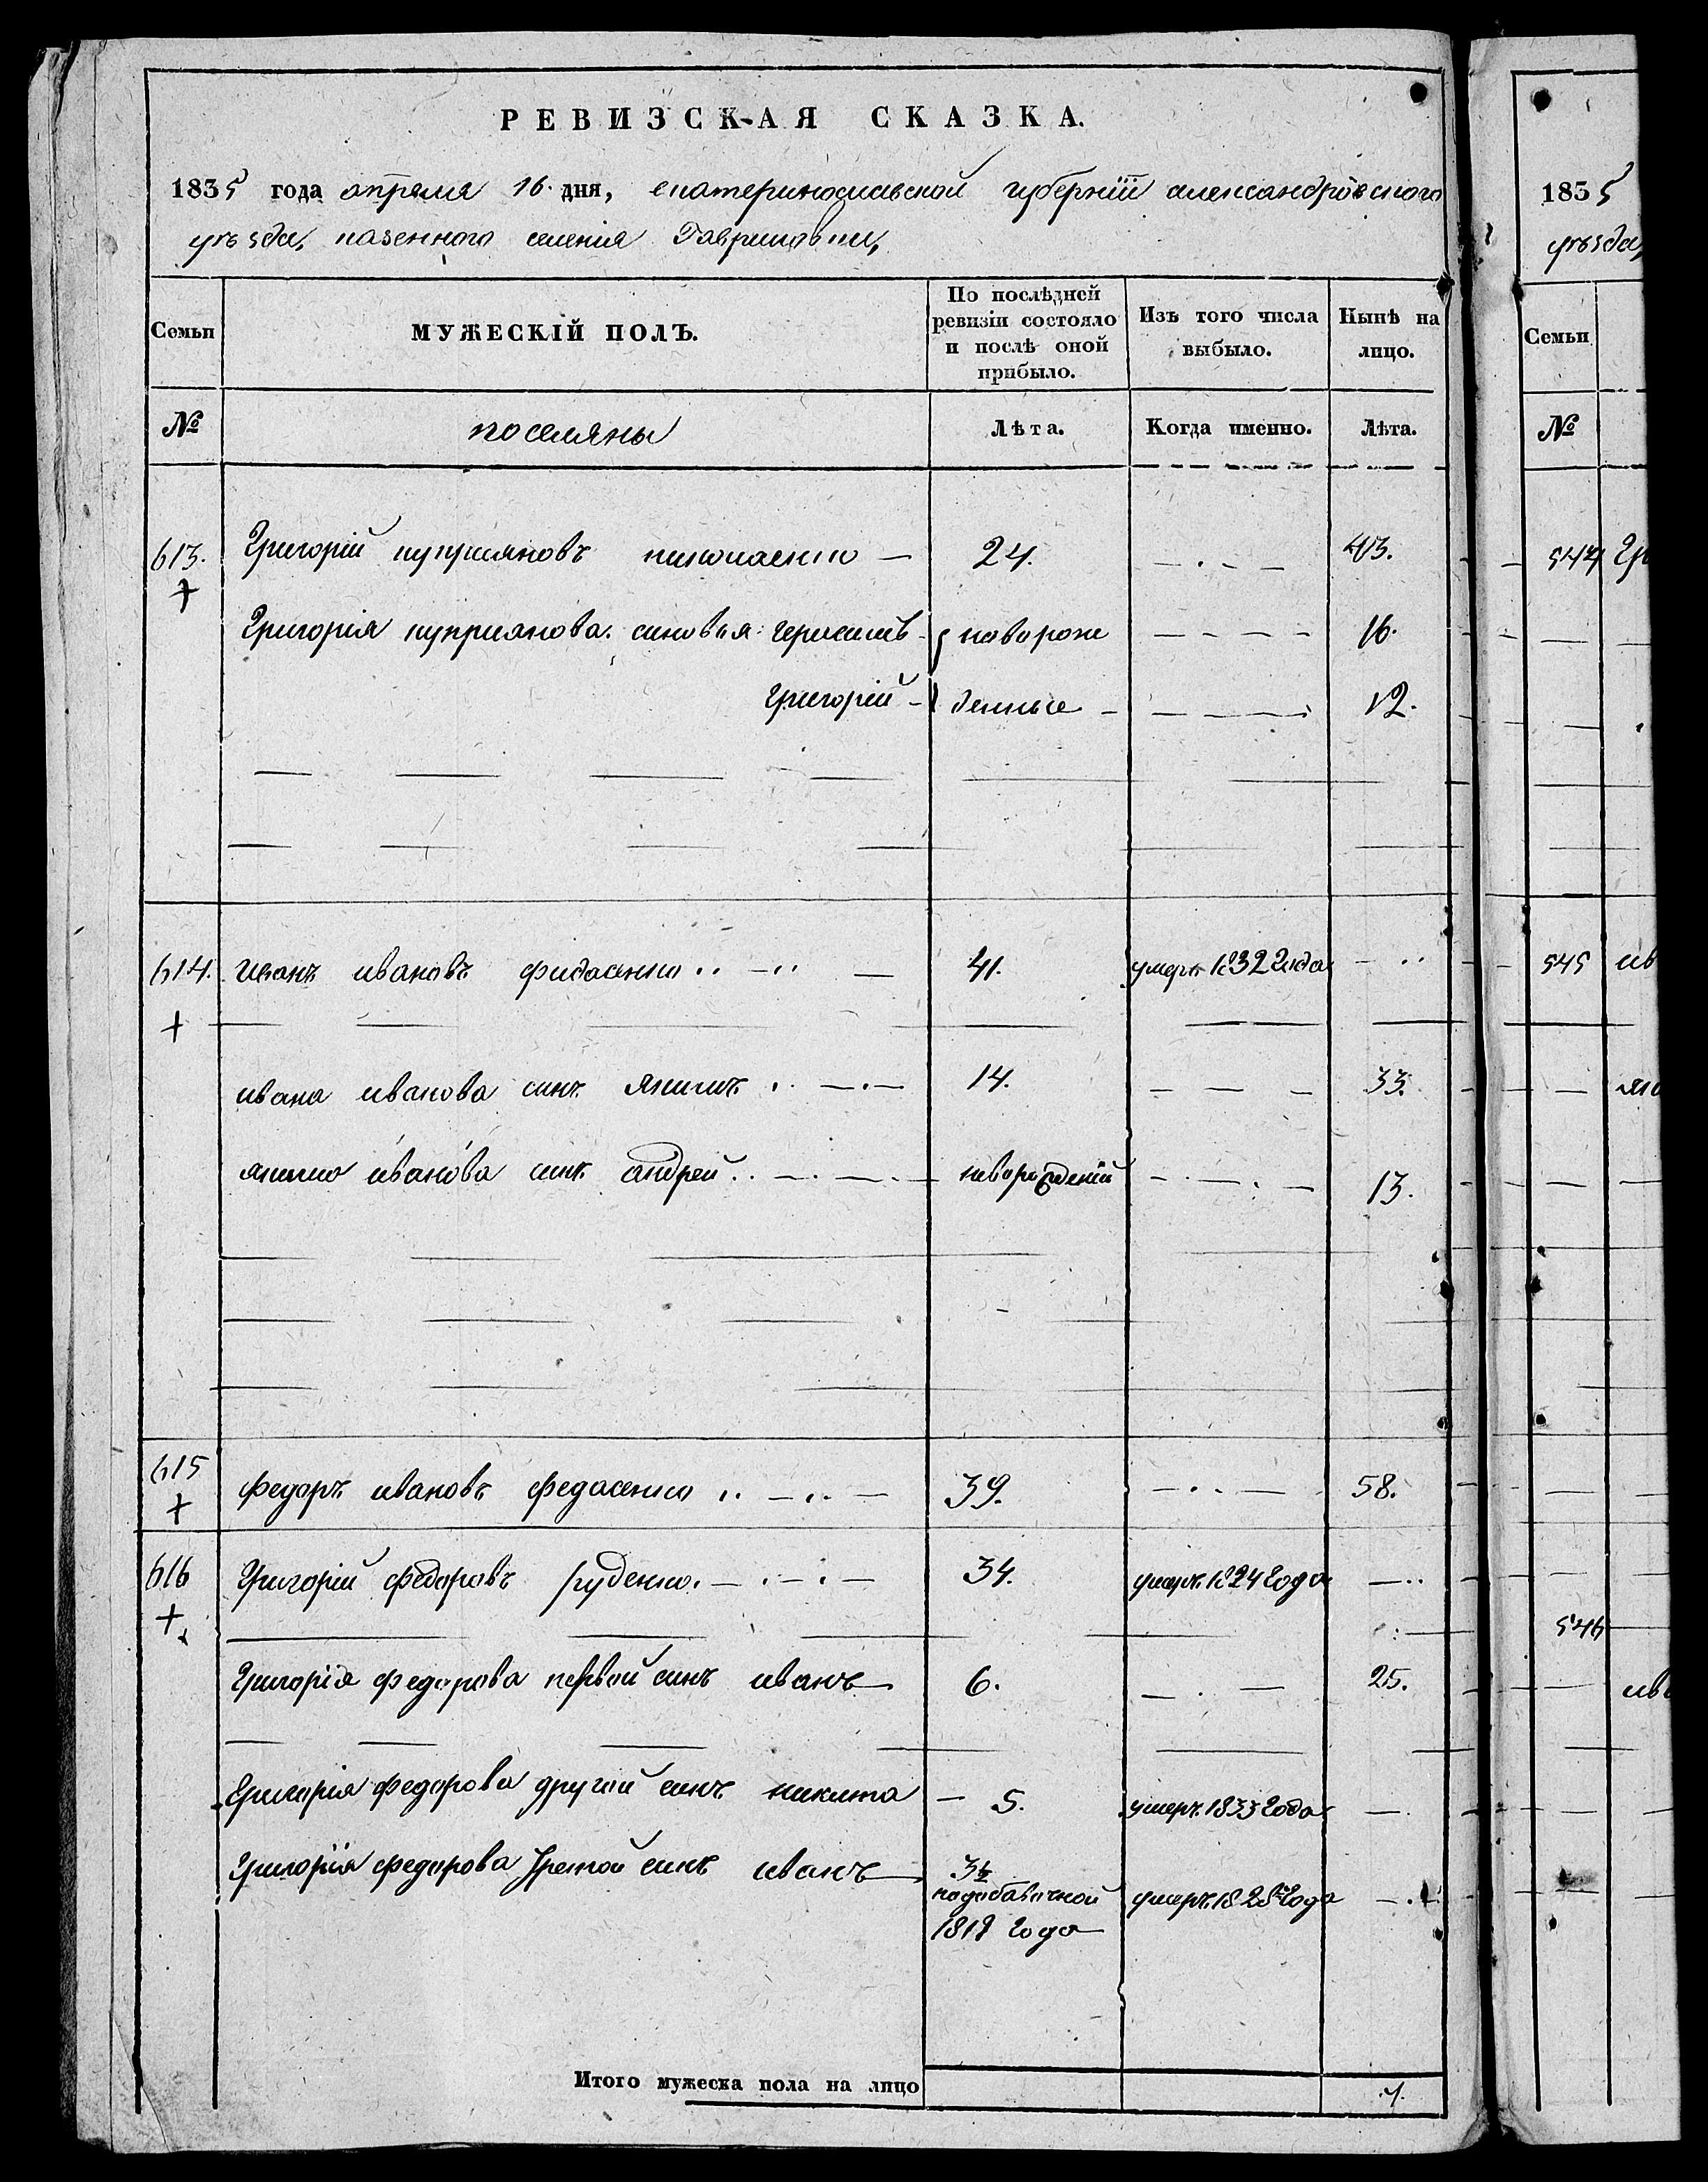 РЕВИЗСКАЯ СКАЗКА.
1835 года апреля 16. дня, екатеринославской губернїи александровского
уѣзда, казенного селенія Гавриловки,
Семьи
МУЖЕСКІЙ ПОЛЪ.
По послѣдней ревизіи состояло и послѣ оной прибыло.
Изъ того числа выбыло.
Нынѣ на лицо.
№ поселяны Лѣта. Когда именно. Лѣта.
613. Григорій куприяновъ николаенко — 24. 43.
Григорія куприянова. синовья: герасимъ новорож 16.
Григорій денные 12.
614. иванъ ивановъ федосенко 41. умеръ 1832 года
ивана иванова синъ якимъ 14. 33.
якима иванова синъ андрей новорожденій 13.
615 федоръ ивановъ федосенко 39. 58.
616 Григорій федоровъ руденко. 34. умеръ 1824 года
Григорія федорова первой синъ иванъ 6. 25.
Григорія федорова другой синъ никита 5. умеръ 1833 года
Григорїя федорова третой синъ иванъ 3½
подобавочной умеръ 1828 года
1818 года
Итого мужеска пола на лицо 7.
1835
уѣзда,
Семьи
№
544
545 ив
546
ив